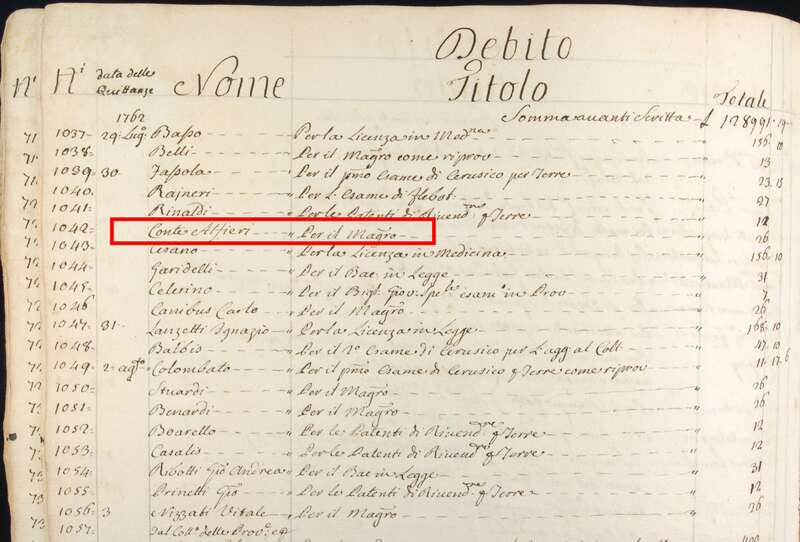 Debito
N.i N.i data delle Quittanze Nome Titolo Totale
1762 Somma avanti Scritta £ 128991.19
71 1037 29 Lug.o Basso " Per la Licenza in Med.na " 156.10
1038 Belli " Per il Mag.ro come riprov " 13
1039 30 Fassola " Per il p.mo Esame di Cerusico per Terre " 23.15
1040 Rajneri " Per l'Esame di Flebot. " 27
1041 Rinaldi " Per le Patenti di Rivend.re p Terre " 12
1042 Conte Alfieri " Per il Mag.ro " 26
1043 Cesano " Per la Licenza in Medicina " 156.10
1044 Garidelli " Per il Bac in Legge " 31
1045 Celerino " Per il Bigl. Giov. Spe.le esam.o in Prov " 7
1046 Canibus Carlo " Per il Mag.ro " 26
1047 31 Lanzetti Ignazio " Per la Licenza in Legge " 168.10
1048 Balbis " Per il 2.o Esame di Cerusico per l'agg. al Coll. " 47.10
1049 2 ag.to Colombato " Per il p.mo Esame di Cerusico p Terre come riprov " 11.17.6
1050 Stuardi " Per il Mag.ro " 26
1051 Benardi " Per il Mag.ro " 26
1052 Boarello " Per le Patenti di Rivend.re p Terre " 12
1053 Casalis " Per le Patenti di Rivend.re p Terre " 12
1054 Rivolti Gio Andrea " Per il Bac in Legge " 31
1055 Prinetti Gio " Per le Patenti di Rivend.re p Terre " 12
1056 3 Nizzati Vitale " Per il Mag.ro " 26
1057 dal Coll.o delle Prov.e